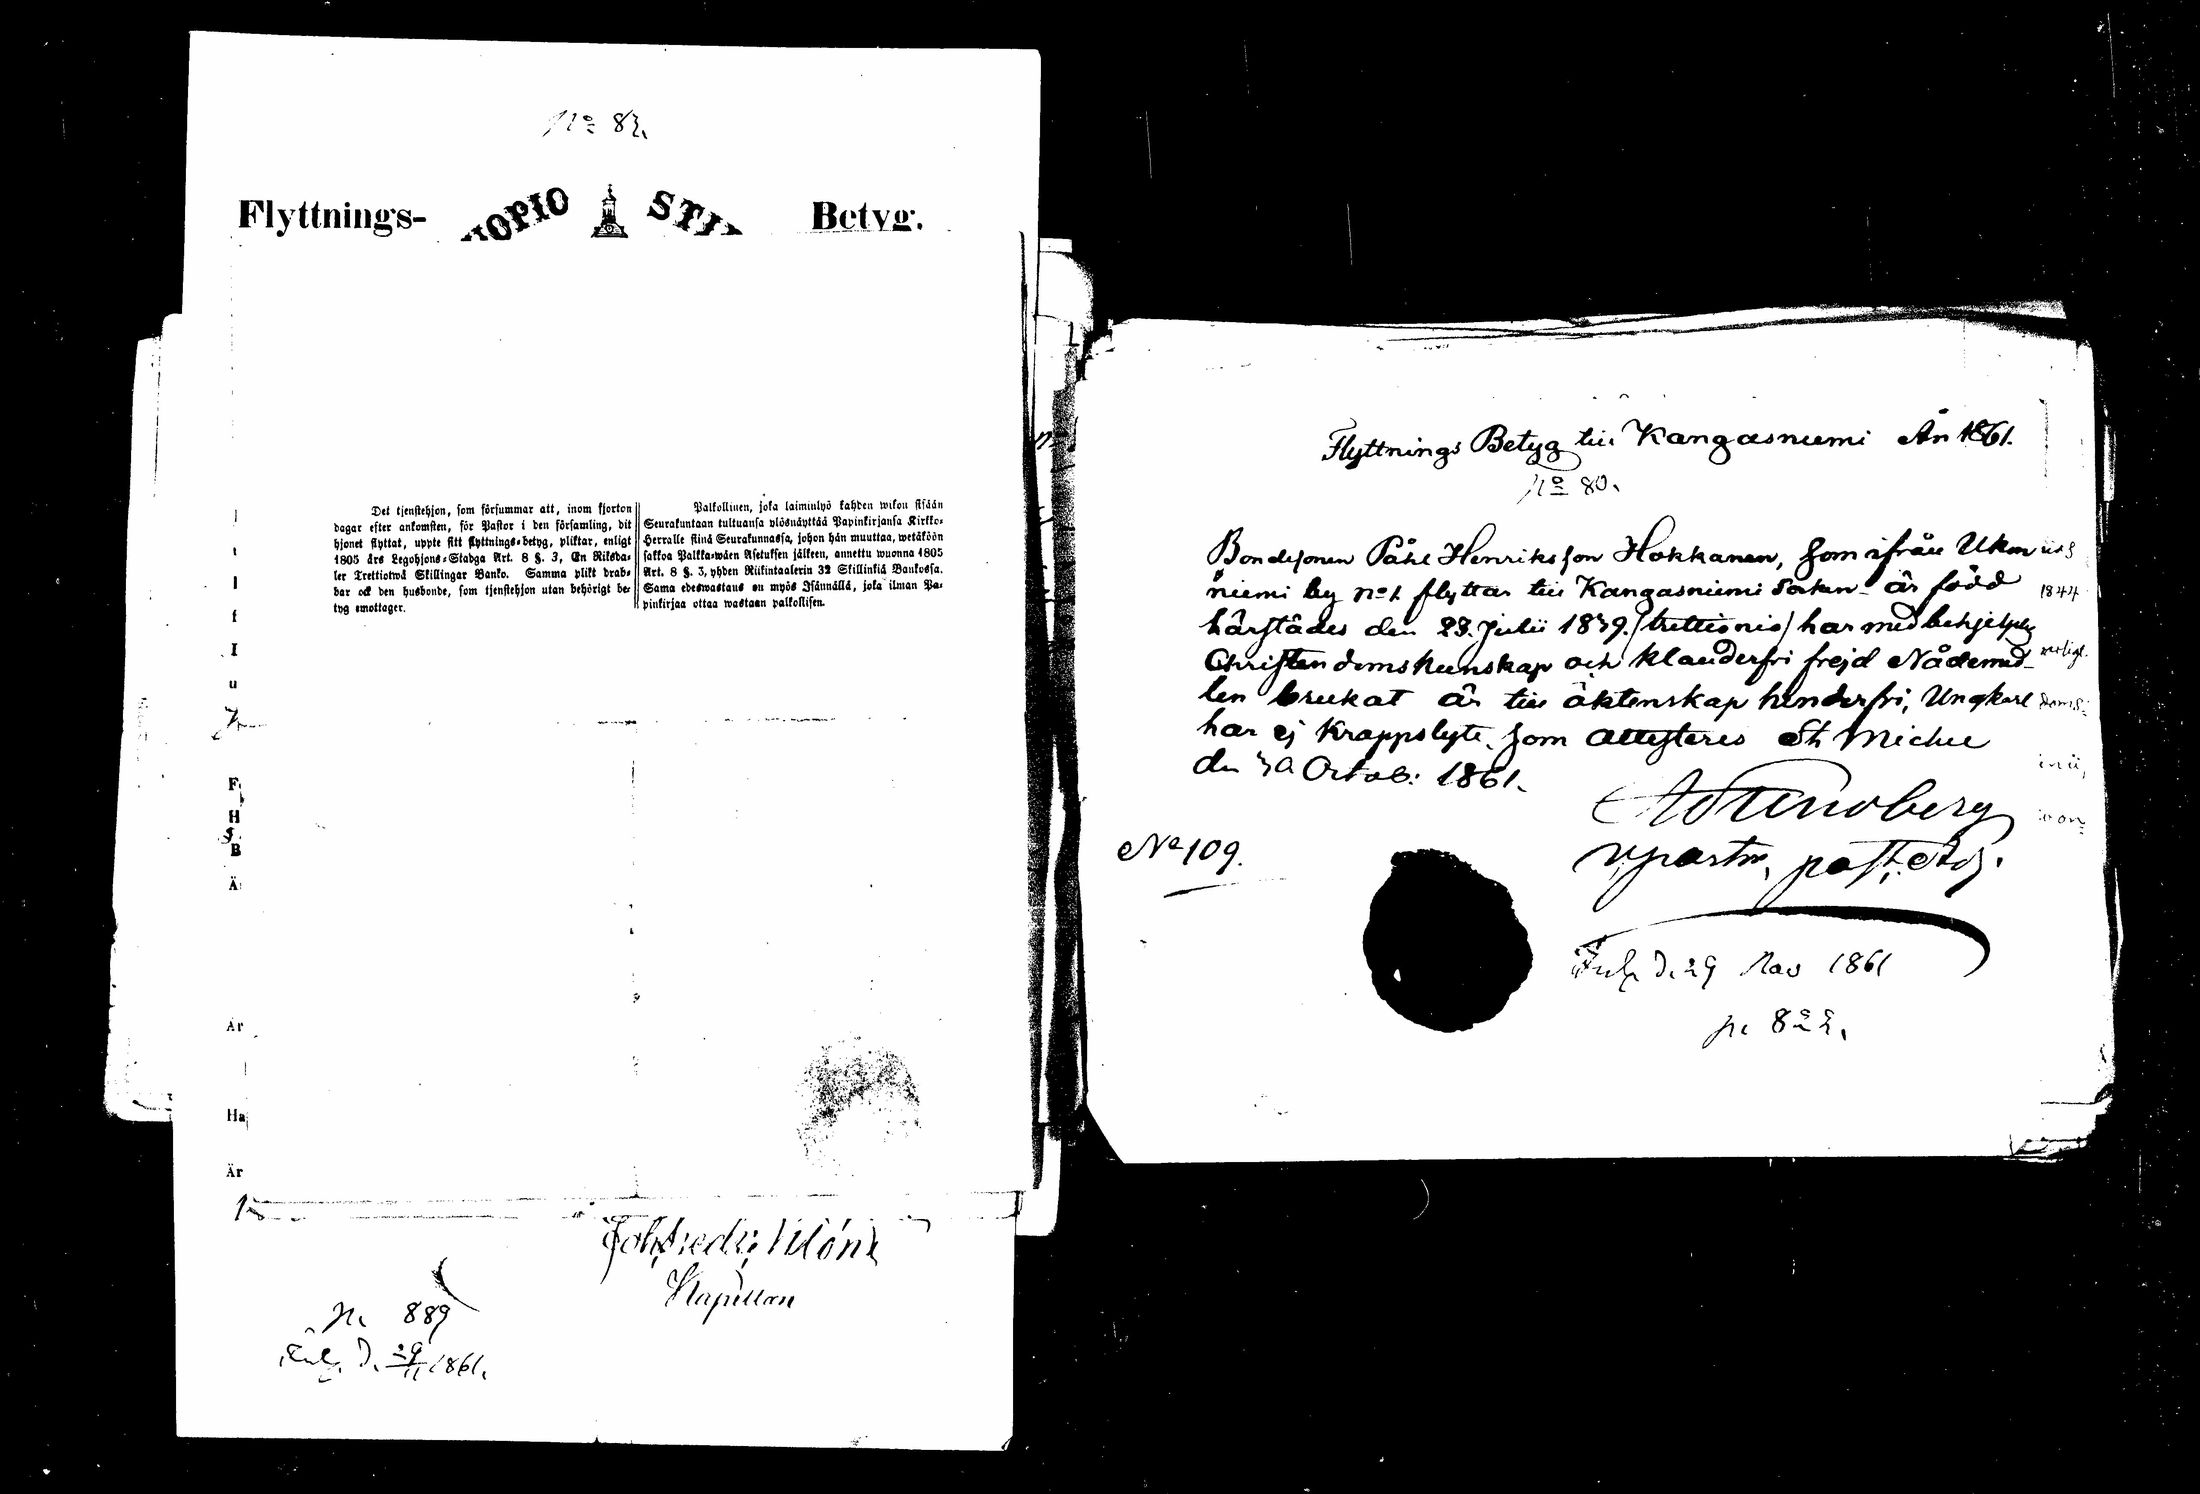 No 82.
Flyttnings- Betyg.
Det tjenstehjon, som försummar att, inom fjorton
dagar efter ankomsten, för Pastor i den församling, dit
hjonet flyttat, uppte sitt flyttnings-betyg, pliktar, enligt
1805 års Legohjons-Stadga Art. 8 §. 3, En Riksda-
ler Trettiotwå Skillingar Banko. Samma plikt drab-
bar ock den husbonde, som tjenstehjon utan behörigt be-
tyg emottager.
Palkollinen, joka laiminlyö kahden wikon sisään
Seurakuntaan tultuansa ylösnäyttää Papinkirjansa Kirkko-
Herralle siinä Seurakunnassa, johon hän muuttaa, wetäköön
sakkoa Palkka-wäen Asetuksen jälkeen, annettu wuonna 1805
Art. 8 §. 3, yhden Riikintaalerin 32 Skillinkiä Bankossa.
Sama edeswastaus on myös Isännällä, joka ilman Pa-
pinkirjaa ottaa wastaan palkollisen.
F
H
B
Ä
Är
Ha
Är
Kapellan
N. 889
d. 29/11 1861.
Flyttnings Betyg till Kangasniemi År 1861.
No 80.
Bondesonen Påhl Henriksson Hokkanen, som ifrån Ukon
niemi by No 1 flyttar till Kangasniemi Socken är född
härstädes den 23. Julii 1839. (trettionio) har med behjelplig
Christendomskunskap och klanderfri frejd Nådemed-
len brukat är till äktenskap hinderfri, Ungkarl
har ej Krappslyte. som attesteras St Michel
den 30 Octob: 1861.
1844
No 109.
v. pastor, past. Adj.
d. 29 Nov 1861